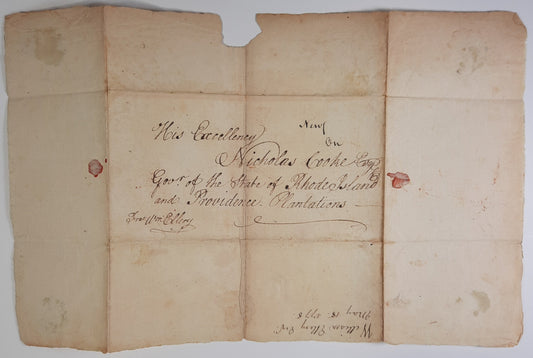 His Excellency
Nicholas Cooke Esqr
Govr. of the State of Rhode Island
and Providence Plantations
Free Wm. Ellery
William Ellery Esqr
May 13. 1778